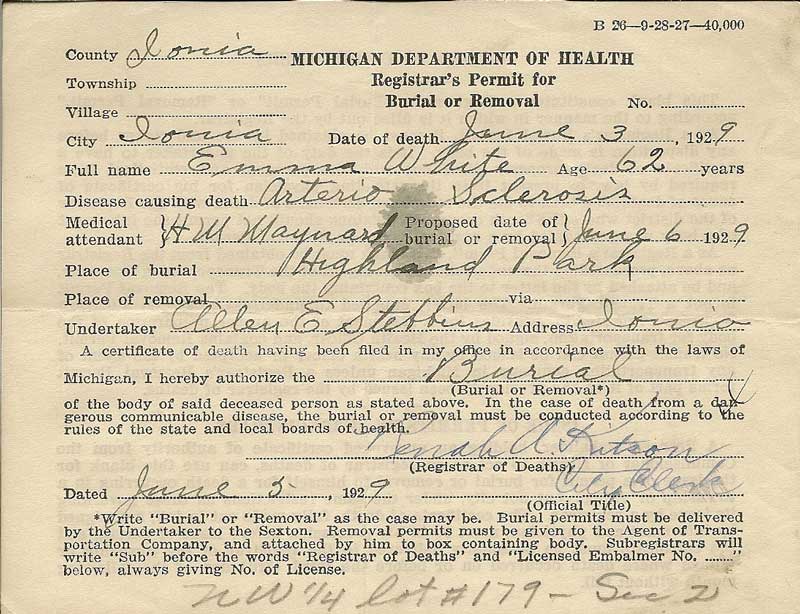 B 26—9-28-27—40,000
County Ionia MICHIGAN DEPARTMENT OF HEALTH
Township Registrar's Permit for
Village Burial or Removal No.
City Ionia Date of death June 3, 1929
Full name Emma White Age 62 years
Disease causing death Arterio Sclerosis
Medical attendant } H M Maynard Proposed date of burial or removal } June 6 1929
Place of burial Highland Park
Place of removal via
Undertaker Allen E Stebbins Address Ionia
A certificate of death having been filed in my office in accordance with the laws of
Michigan, I hereby authorize the Burial
(Burial or Removal*)
of the body of said deceased person as stated above. In the case of death from a dan-
gerous communicable disease, the burial or removal must be conducted according to the
rules of the state and local boards of health.
A. Kitson
(Registrar of Deaths)
City Clerk
Dated June 5, 1929
(Official Title)
*Write "Burial" or "Removal" as the case may be. Burial permits must be delivered
by the Undertaker to the Sexton. Removal permits must be given to the Agent of Trans-
portation Company, and attached by him to box containing body. Subregistrars will
write "Sub" before the words "Registrar of Deaths" and "Licensed Embalmer No. ........"
below, always giving No. of License.
NW 1/4 lot #179 - Sec 2